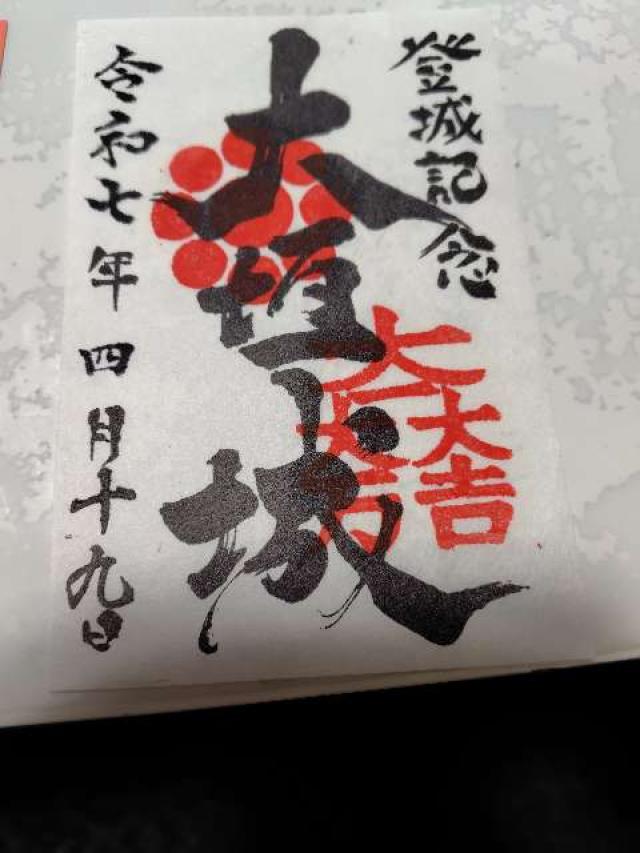 登城記念
大垣城
大一大万大吉
令和七年四月十九日